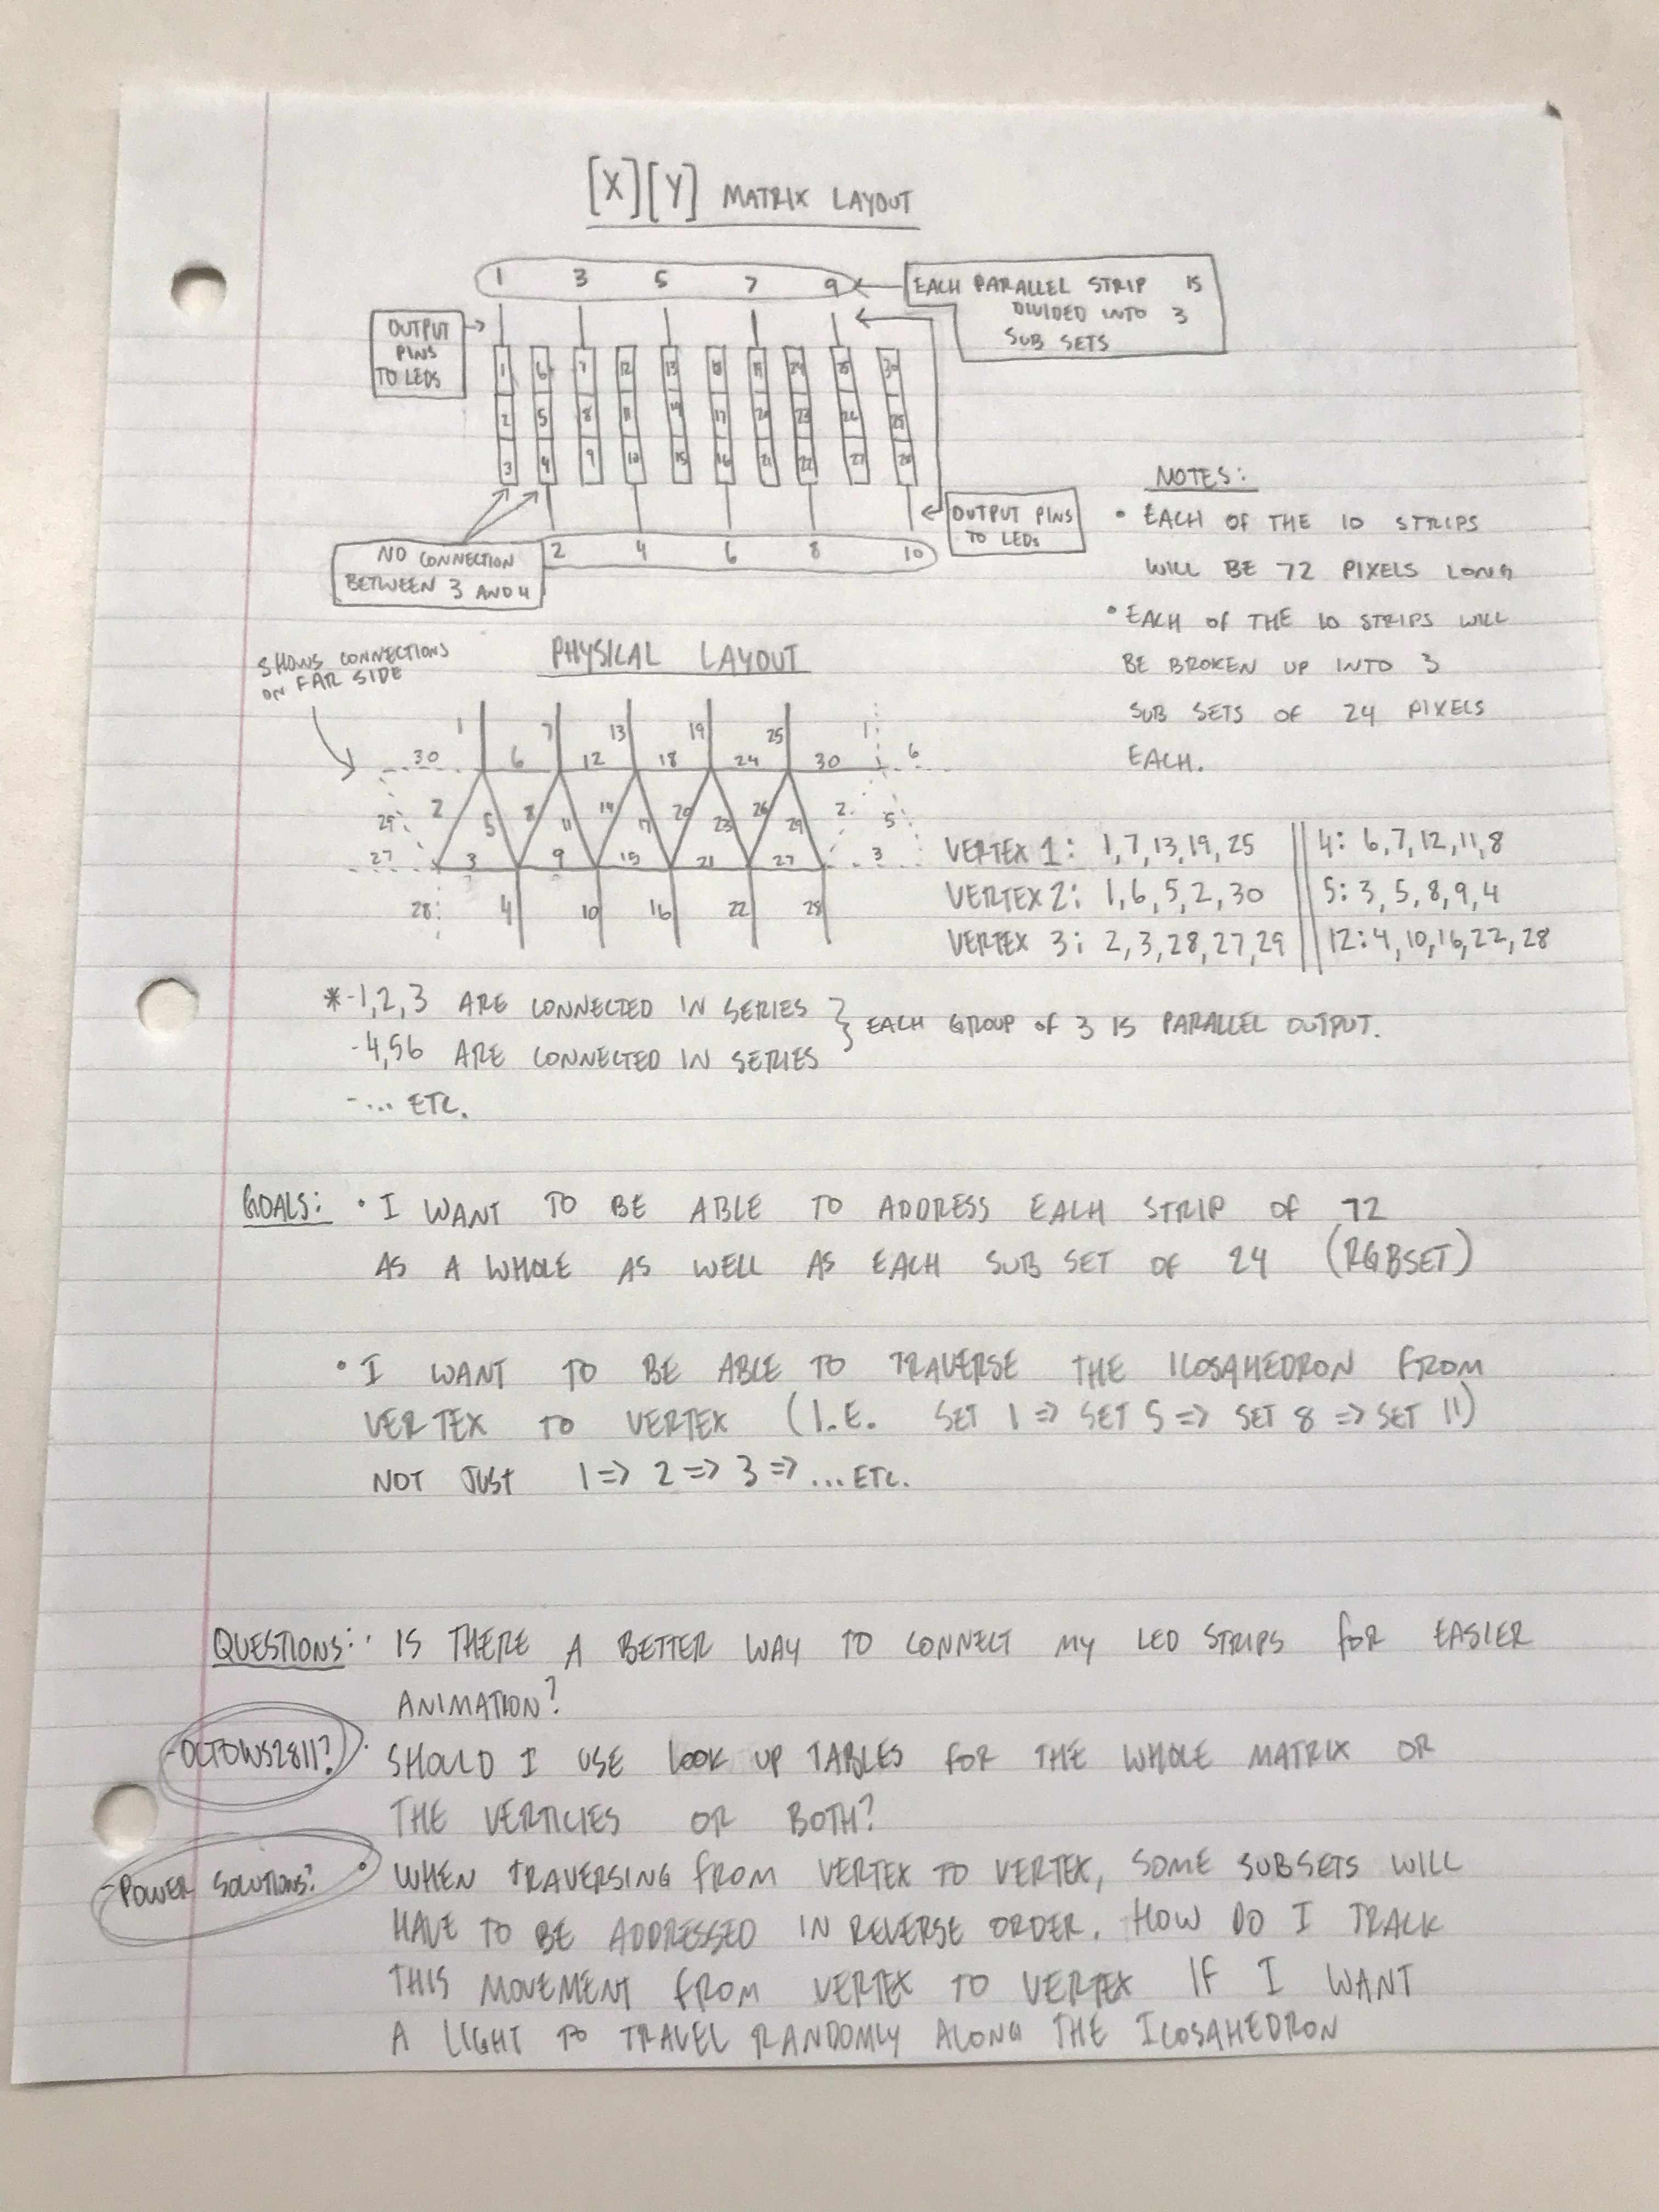 [X][Y] MATRIX LAYOUT
1 3 5 7 9
EACH PARALLEL STRIP IS
DIVIDED INTO 3
SUB SETS
OUTPUT
PINS
TO LEDS
1 6 7 12 13 18 19 24 25 30
2 5 8 11 14 17 20 23 26 29
3 4 9 10 15 16 21 22 27 28
OUTPUT PINS
TO LEDs
NO CONNECTION
BETWEEN 3 AND 4
2 4 6 8 10
NOTES:
• EACH OF THE 10 STRIPS
WILL BE 72 PIXELS LONG
• EACH OF THE 10 STRIPS WILL
BE BROKEN UP INTO 3
SUB SETS OF 24 PIXELS
EACH.
SHOWS CONNECTIONS
ON FAR SIDE
PHYSICAL LAYOUT
1 7 13 19 25 1
30 6 12 18 24 30 6
29 2 5 8 11 14 17 20 23 26 29 2 5
27 3 9 15 21 27 3
28 4 10 16 22 28
VERTEX 1: 1,7,13,19,25 || 4: 6,7,12,11,8
VERTEX 2: 1,6,5,2,30 || 5: 3,5,8,9,4
VERTEX 3: 2,3,28,27,29 || 12: 4,10,16,22,28
* -1,2,3 ARE CONNECTED IN SERIES
-4,56 ARE CONNECTED IN SERIES
} EACH GROUP OF 3 IS PARALLEL OUTPUT.
-... ETC.
GOALS: • I WANT TO BE ABLE TO ADDRESS EACH STRIP OF 72
AS A WHOLE AS WELL AS EACH SUB SET OF 24 (RGBSET)
• I WANT TO BE ABLE TO TRAVERSE THE ICOSAHEDRON FROM
VERTEX TO VERTEX (I.E. SET 1 => SET 5 => SET 8 => SET 11)
NOT JUST 1 => 2 => 3 => ...ETC.
QUESTIONS: • IS THERE A BETTER WAY TO CONNECT MY LED STRIPS FOR EASIER
ANIMATION?
-OCTOWS2811?
• SHOULD I USE LOOK UP TABLES FOR THE WHOLE MATRIX OR
THE VERTICIES OR BOTH?
-POWER SOLUTIONS?
• WHEN TRAVERSING FROM VERTEX TO VERTEX, SOME SUBSETS WILL
HAVE TO BE ADDRESSED IN REVERSE ORDER. HOW DO I TRACK
THIS MOVEMENT FROM VERTEX TO VERTEX IF I WANT
A LIGHT TO TRAVEL RANDOMLY ALONG THE ICOSAHEDRON